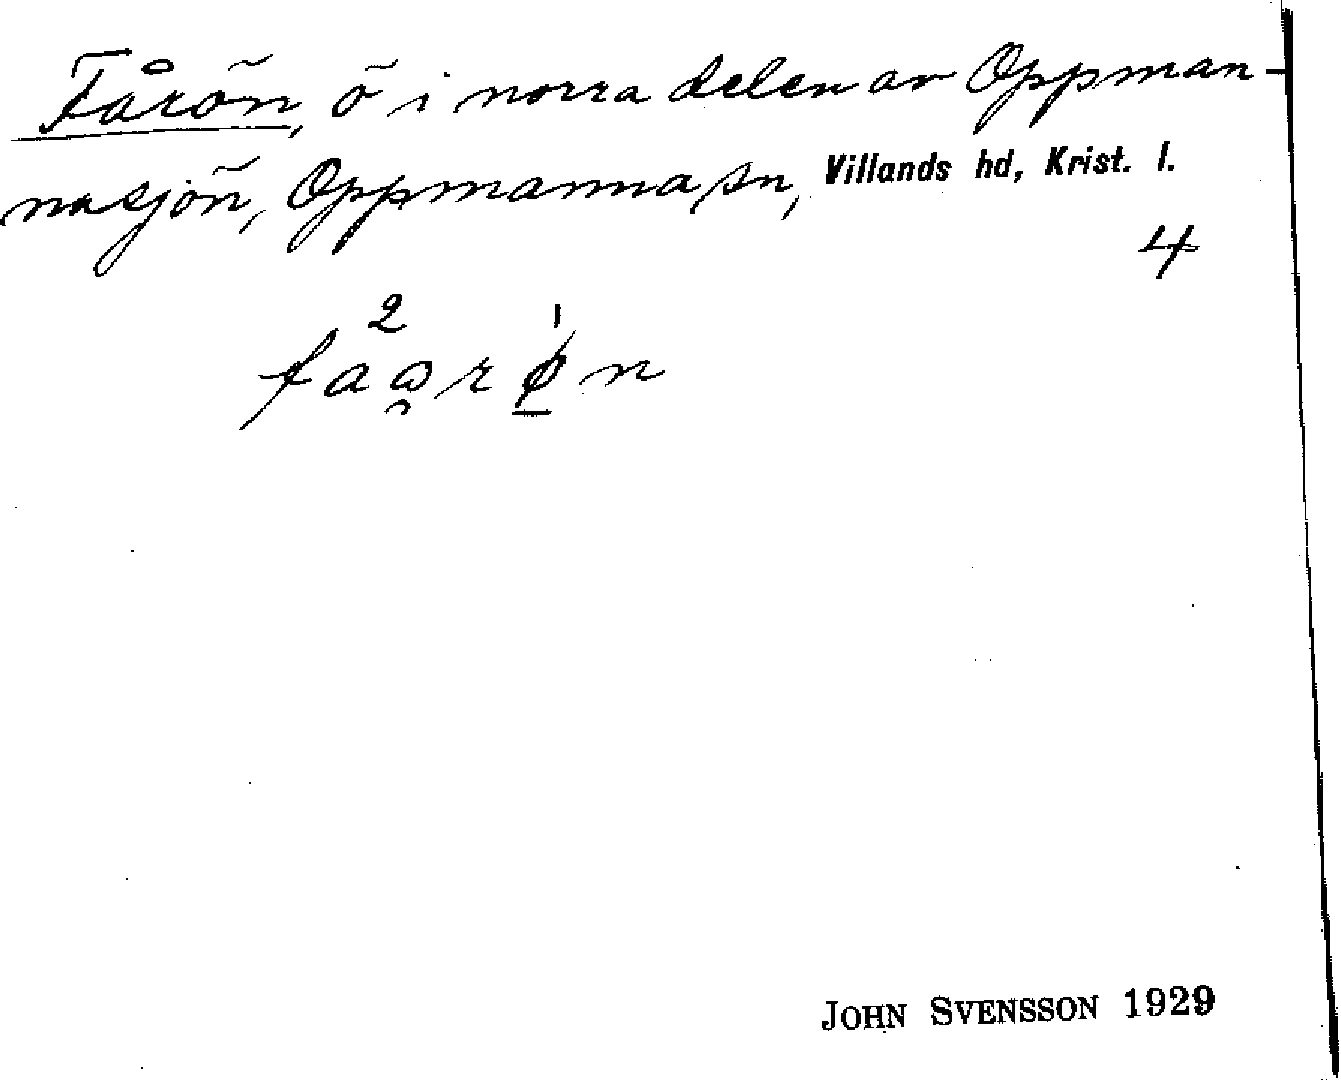 Fårön, ö i norra delen av Oppman-
nasjön, Oppmanna sn, Villands hd, Krist. l.
4
2 1
faɷ̯rø̱n
JOHN SVENSSON 1929